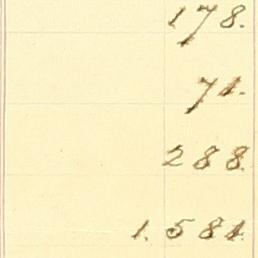 178.
71.
288.
1.581.